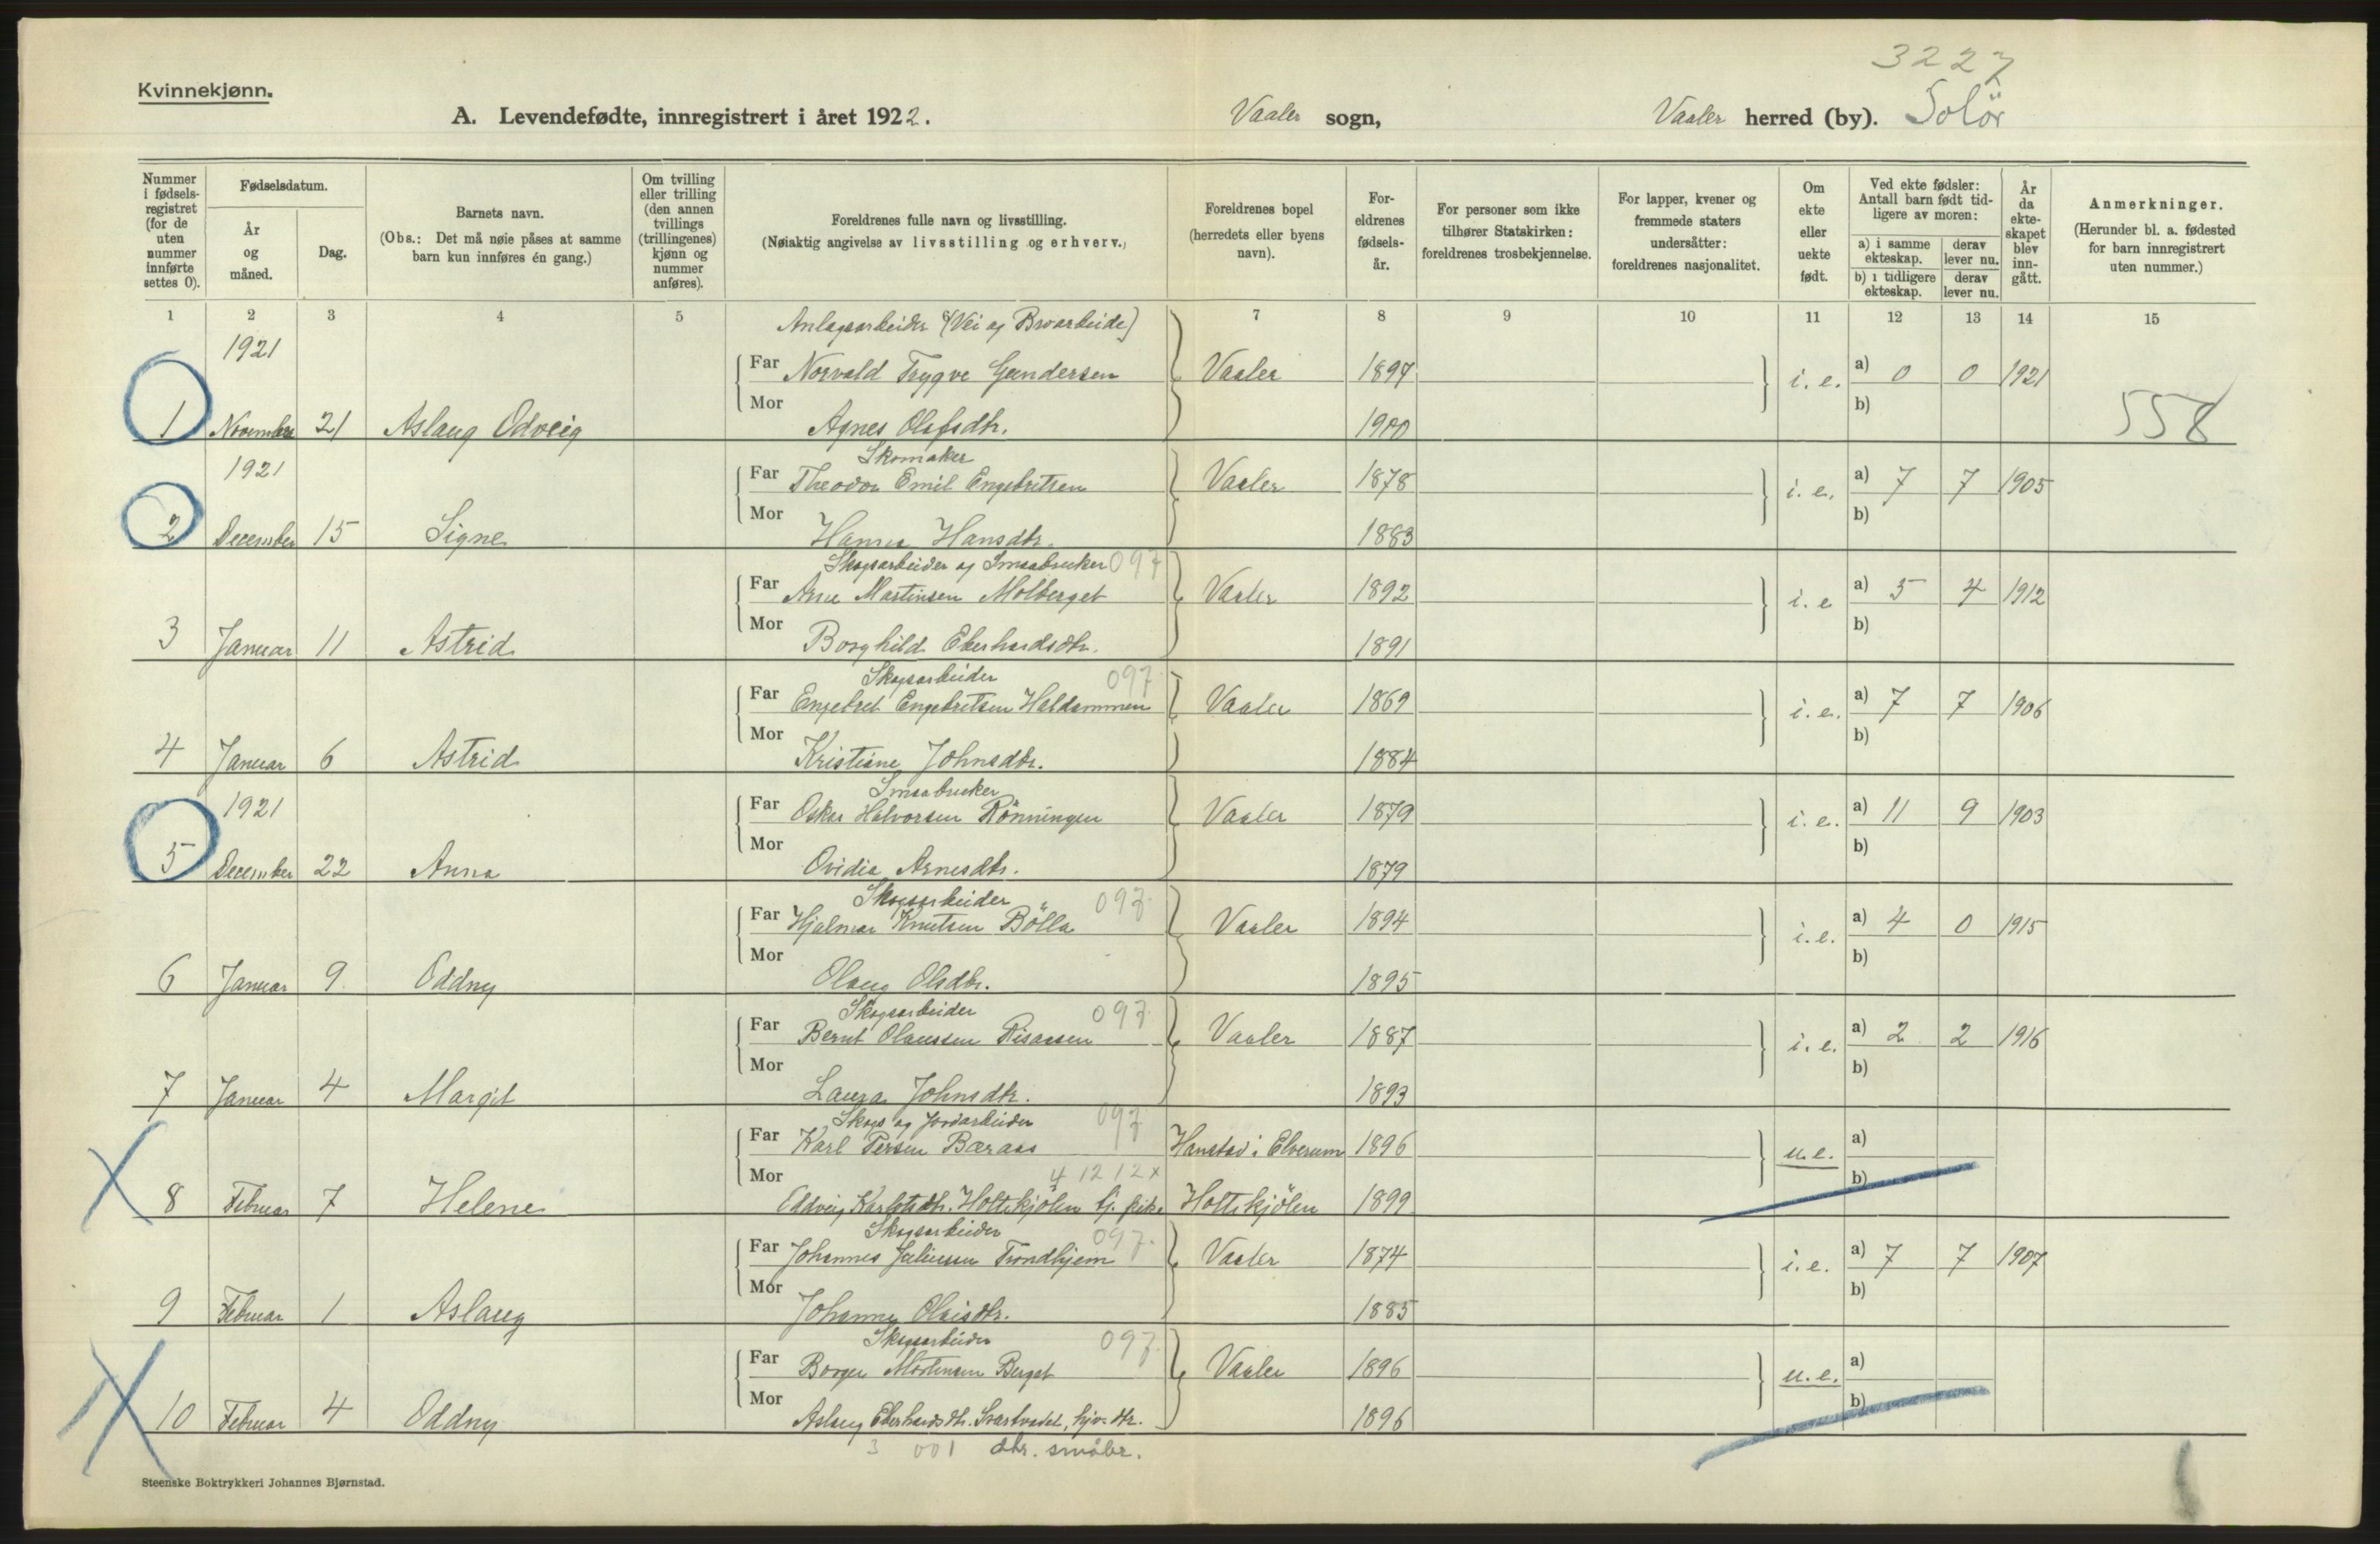 3227
Kvinnekjønn.
A. Levendefødte, innregistrert i året 1922. Vaaler sogn, Vaaler herred (by). Solör
Nummer i fødsels-registret (for de uten nummer innførte settes 0).
Fødselsdatum.
År og måned.
Dag.
Barnets navn.
(Obs.: Det må nøie påses at samme barn kun innføres én gang.)
Om tvilling eller trilling (den annen tvillings (trillingenes) kjønn og nummer anføres).
Foreldrenes fulle navn og livsstilling.
(Nøiaktig angivelse av livsstilling og erhverv.)
Foreldrenes bopel (herredets eller byens navn).
For-eldrenes fødsels-år.
For personer som ikke tilhører Statskirken: foreldrenes trosbekjennelse.
For lapper, kvener og fremmede staters undersåtter: foreldrenes nasjonalitet.
Om ekte eller uekte født.
Ved ekte fødsler: Antall barn født tid-ligere av moren:
a) i samme ekteskap.
derav lever nu.
b) i tidligere ekteskap.
derav lever nu.
År da ekte-skapet blev inn-gått.
Anmerkninger.
(Herunder bl. a. fødested for barn innregistrert uten nummer.)
1 2 3 4 5 6 7 8 9 10 11 12 13 14 15
Anlagsarbeider (Vei og Broarbeide)
1921
Far Norvald Trygve Gundersen Vaaler 1897 i. e. a) 0 0 1921
Mor b)
1 November 21 Aslaug Odveig Agnes Olafsdtr. 1900 558
Skomaker
1921 Far Theodor Emil Engebritsen Vaaler 1878 i. e. a) 7 7 1905
Mor b)
2 December 15 Signe Hanna Hansdtr. 1883
Skogsarbeider og Smaabruker 097
Far Arne Martinsen Molberget Vaaler 1892 i. e a) 5 4 1912
Mor b)
3 Januar 11 Astrid Borghild Eberhardsdtr. 1891
Skogsarbeider 097
Far Engebret Engebretsen Haldammen Vaaler 1869 i. e. a) 7 7 1906
Mor b)
4 Januar 6 Astrid Kristiane Johnsdtr. 1884
Smaabruker
1921 Far Oskar Halvorsen Rönningen Vaaler 1879 i. e. a) 11 9 1903
Mor b)
5 December 22 Anna Ovidia Arnesdtr. 1879
Skogsarbeider 097
Far Hjalmar Knutsen Bölla Vaaler 1894 i. e. a) 4 0 1915
Mor b)
6 Januar 9 Oddny Olaug Olsdtr. 1895
Skogsarbeider 097
Far Bernt Olaussen Risaasen Vaaler 1887 i. e. a) 2 2 1916
Mor b)
7 Januar 4 Margit Laura Johnsdtr. 1893
Skogs og Jordarbeider 097
Far Karl Persen Bæraas Hanstad i Elverum 1896 u. e. a)
Mor 4 12 12 x b)
8 Februar 7 Helene Eddveig Karlstdtr. Holtskjölen tj. pike Holtskjölen 1899
Skogsarbeider 097
Far Johannes Juliussen Trondhjem Vaaler 1874 i. e. a) 7 7 1907
Mor b)
9 Februar 1 Aslaug Johanna Olaisdtr. 1885
Skogsarbeider 097
Far Borger Mortensen Berget Vaaler 1896 u. e. a)
Mor b)
10 Februar 4 Oddny Aslaug Eberhardsdtr. Svartvadet, hjv. dtr. 1896
3 001 dtr. småbr.
Steenske Boktrykkeri Johannes Bjørnstad.